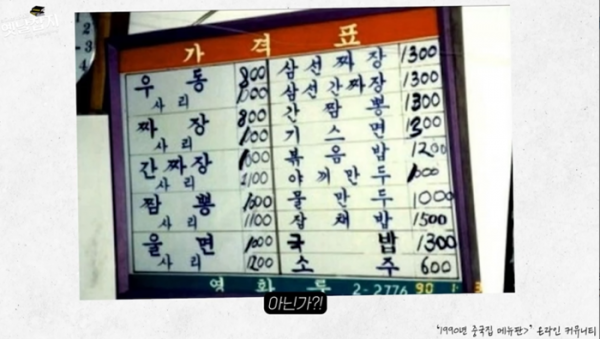 가격표
우동 800
사리 1000
짜장 800
사리 1000
간짜장 1000
사리 1100
짬뽕 1000
사리 1100
울면 1000
사리 1200
삼선짜장 1300
삼선간짜장 1300
간짬뽕 1300
기스면 1300
볶음밥 1200
야끼만두 1000
물만두 1000
잡채밥 1500
국밥 1300
소주 600
2-2776 90.1.
아닌가?!
'1990년 중국집 메뉴판>' 온라인 커뮤니티